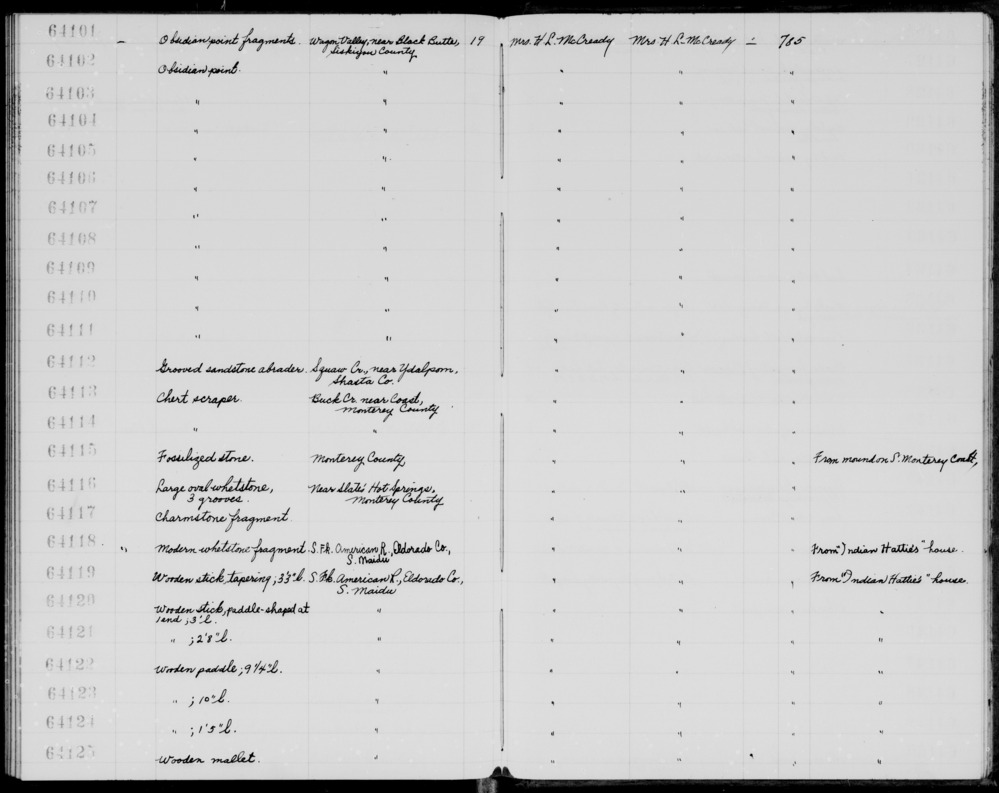 64101 – Obsidian point fragments. Wagon Valley, near Black Butte, 19 Mrs. H. L. McCready Mrs H. L. McCready – 785
Siskiyou County
64102 Obsidian point. " " " "
64103 " " " " "
64104 " " " " "
64105 " " " " "
64106 " " " " "
64107 " " " " "
64108 " " " " "
64109 " " " " "
64110 " " " " "
64111 " " " " "
64112 Grooved sandstone abrader. Squaw Cr., near Ydalpom, " " "
Shasta Co.
64113 Chert scraper. Buck Cr. near Coast, " " "
Monterey County
64114 " " " " "
64115 Fossilized stone. Monterey County " " " From mound on S. Monterey Coast,
64116 Large oval whetstone, Near Slate's Hot Springs, " " "
3 grooves. Monterey County
64117 Charmstone fragment " " "
64118 " Modern whetstone fragment S. Fk. American R., Eldorado Co., " " " From "Indian Hattie's" house.
S. Maidu
64119 Wooden stick, tapering; 3'3" l. S. Fk. American R., Eldorado Co., " " " From "Indian Hattie's" house.
S. Maidu
64120 Wooden stick, paddle-shaped at " " " " "
1 end; 3' l.
64121 " ; 2'8" l. " " " " "
64122 Wooden paddle; 9 1/4" l. " " " " "
64123 " ; 10" l. " " " " "
64124 " ; 1'5" l. " " " " "
64125 Wooden mallet. " " " " "